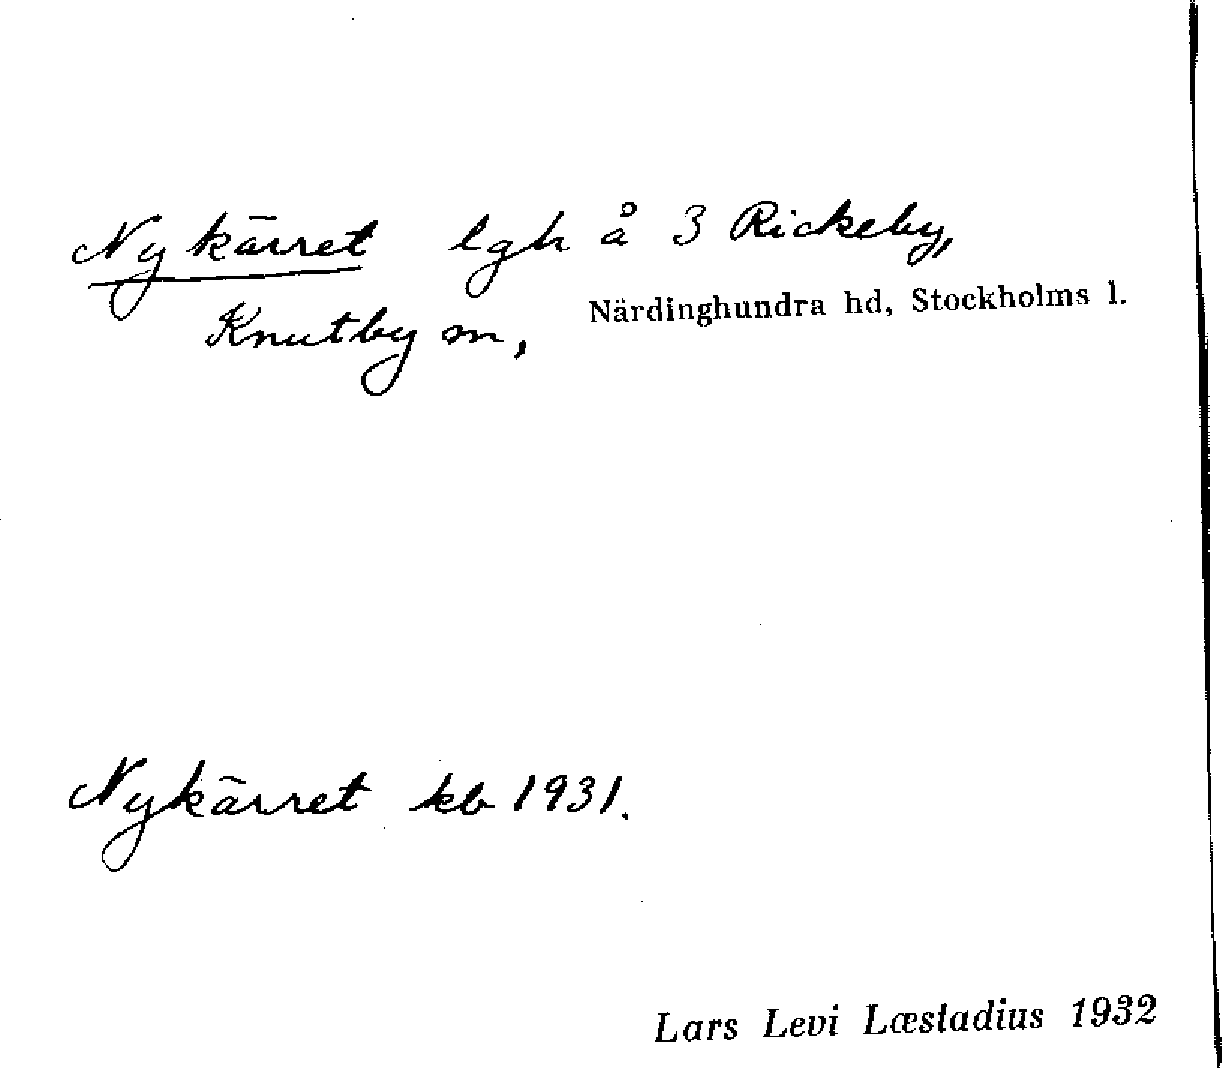 Nykärret lgh å 3 Rickeby,
Knutby sn, Närdinghundra hd, Stockholms l.
Nykärret kb 1931.
Lars Levi Læstadius 1932